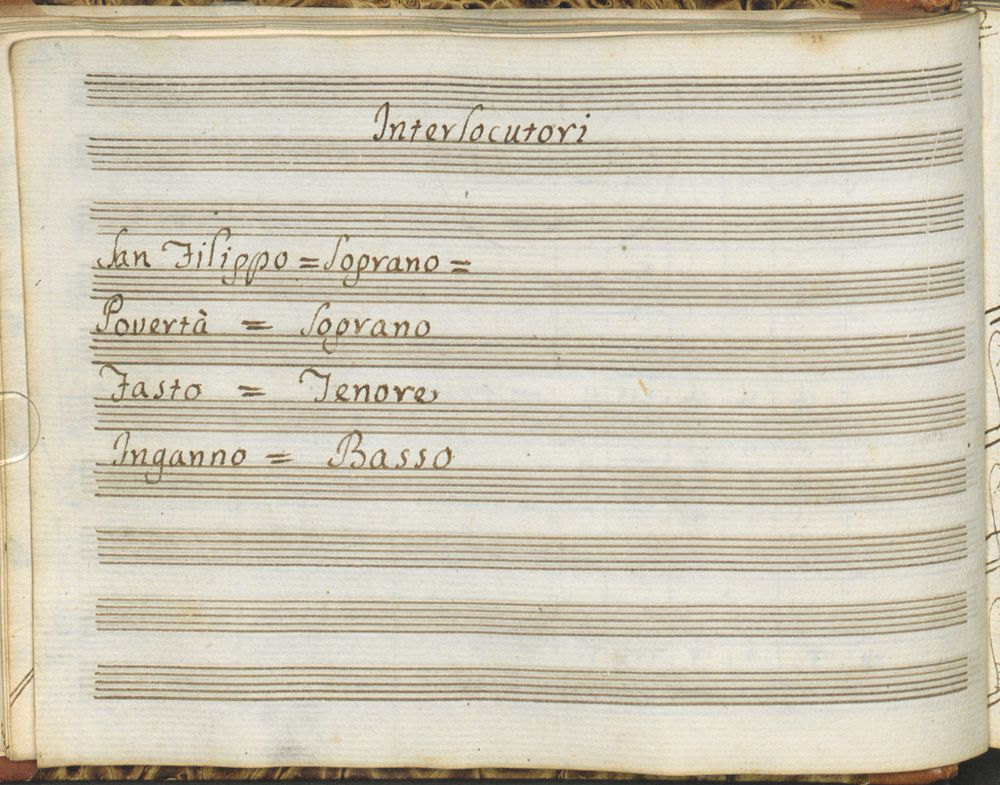 Interlocutori
San Filippo = Soprano =
Povertà = Soprano
Fasto = Tenore
Inganno = Basso